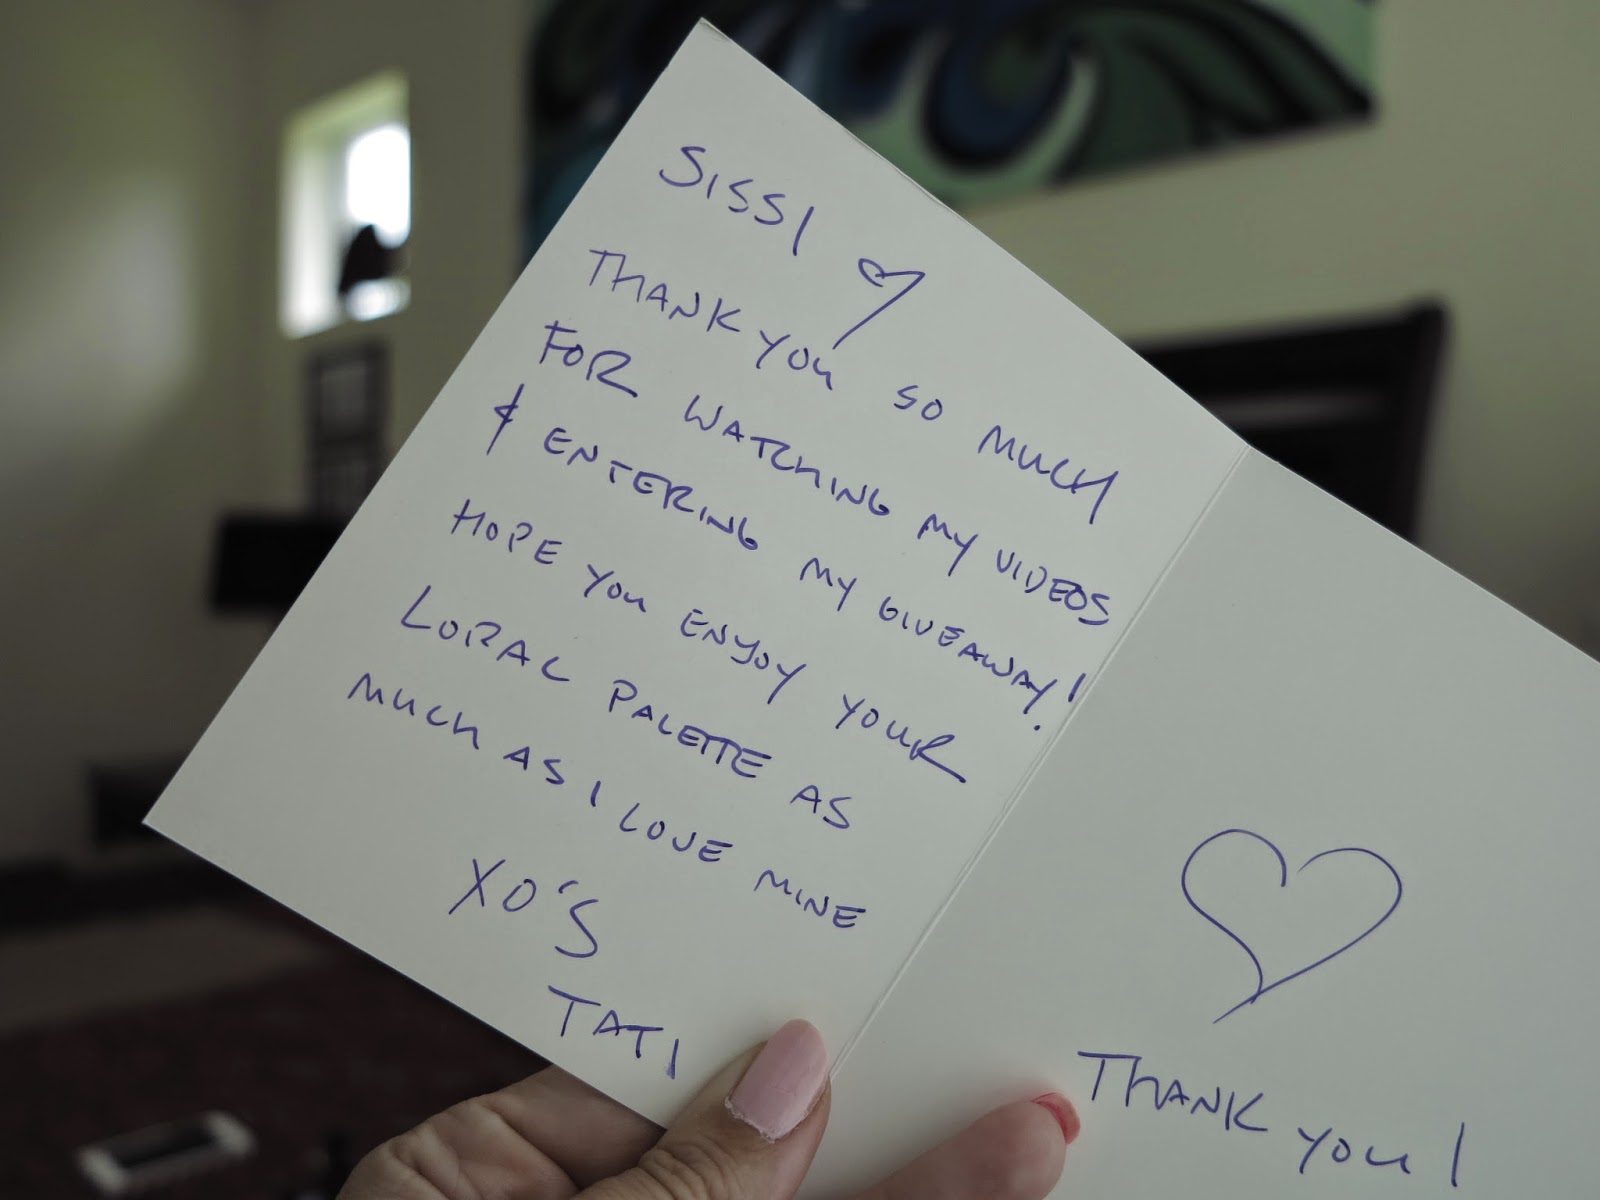 SISSI
THANK YOU SO MUCH
FOR WATCHING MY VIDEOS
& ENTERING MY GIVEAWAY!
HOPE YOU ENJOY YOUR
LORAC PALETTE AS
MUCH AS I LOVE MINE
XO'S
TATI
THANK YOU!